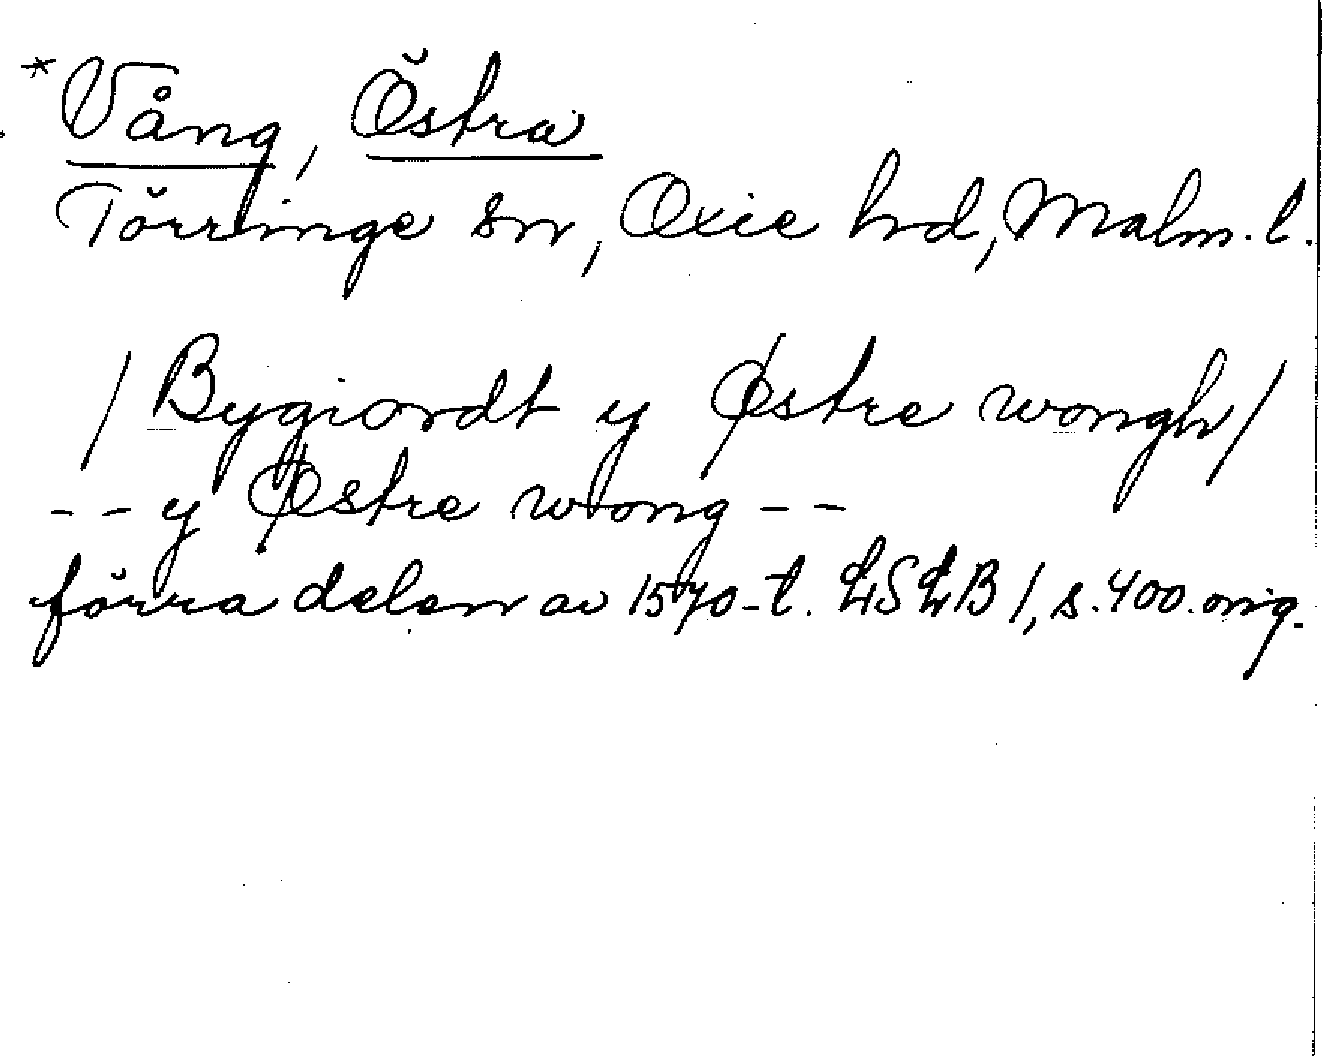 *Vång, Östra
Törringe sn, Oxie hrd, Malm. l.
/ Bygiordt y Østre wongh /
-- y Østre wong --
förra delen av 1570-t. LSLB 1, s. 400. orig.